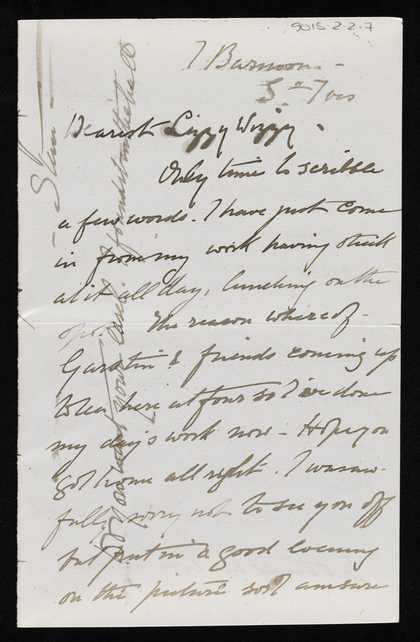 9015-2-2-7
7 Barnoon -
St Ives
Dearest Lizzy Wizzy.
Only time to scribble
a few words. I have just come
in from my work having stuck
at it all day, lunching on the
spot. The reason whereof -
Garstin & friends coming up
to tea here at four so I've done
my day's work now - Hope you
got home all right. I was aw-
fully sorry not to see you off
but put in a good evening
on the picture so I am sure